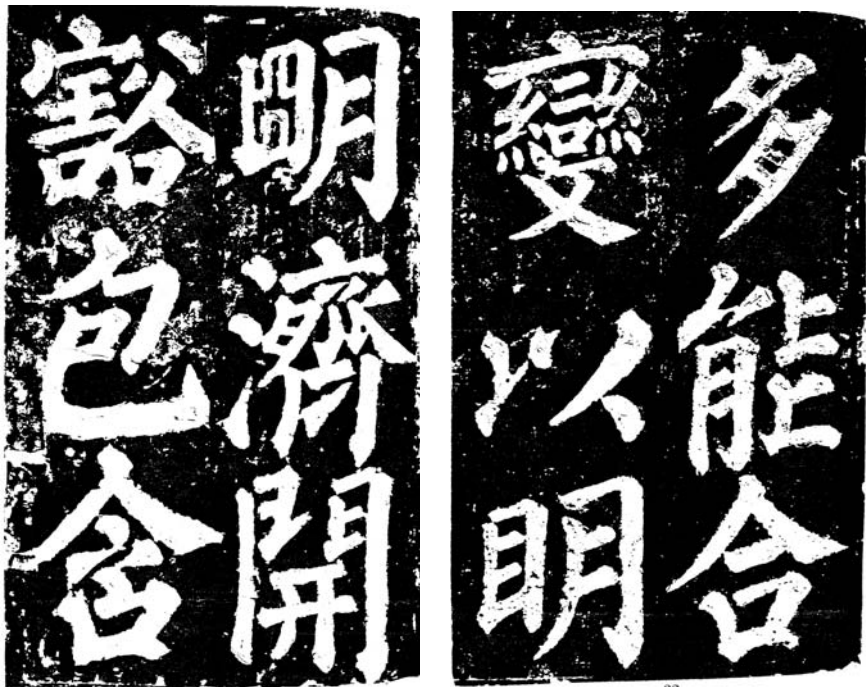 多能合
變以明
明濟開
豁包含